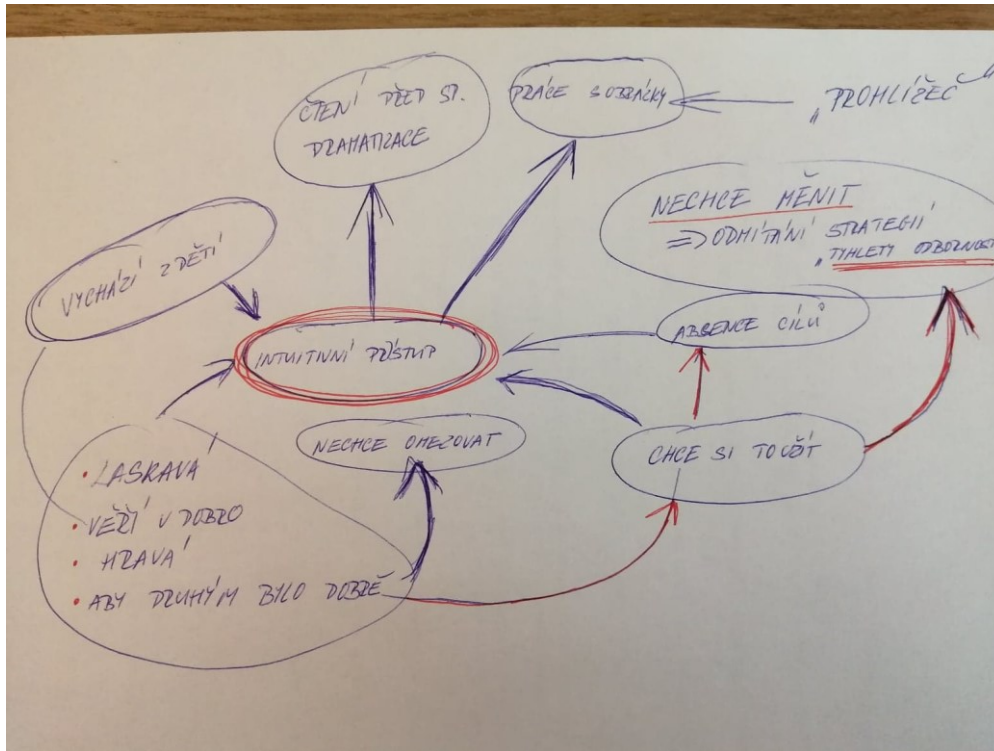 ČTENÍ PŘED SP.
DRAMATIZACE
PRÁCE S OBRÁZKY
„PROHLÍŽEČ“
NECHCE MĚNIT
=> ODMÍTÁNÍ STRATEGIÍ
„TYHLETY ODBORNOST
VYCHÁZÍ Z DĚTÍ
ABSENCE CÍLŮ
INTUITIVNÍ PŘÍSTUP
NECHCE OMEZOVAT
CHCE SI TO UŽÍT
• LASKAVÁ
• VĚŘÍ V DOBRO
• HRAVÁ
• ABY DRUHÝM BYLO DOBŘE